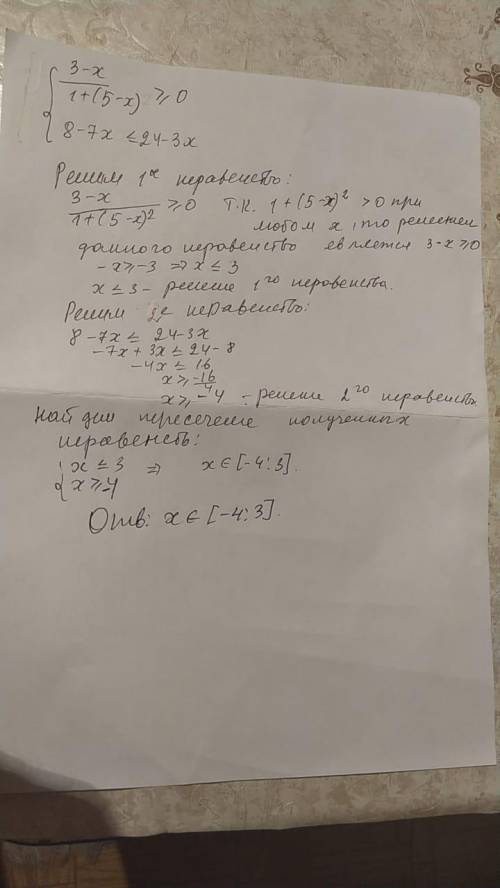 { 3-x / 1+(5-x) ≥ 0
8-7x ≤ 24-3x
Решим 1ое неравенство:
3-x / 1+(5-x)² ≥ 0 т.к. 1+(5-x)² >0 при
любом x, то решением
данного неравенство является 3-x≥0
-x≥-3 ⇒ x ≤ 3
x ≤ 3 - решение 1го неравенства.
Решим 2е неравенство:
8-7x ≤ 24-3x
-7x+3x ≤ 24-8
-4x ≤ 16
x ≥ -16/4
x ≥ -4 - решение 2го неравенств
Найдем пересечение полученных
неравенств:
{ x ≤ 3 ⇒ x∈[-4;3].
x ≥ -4
Отв: x∈[-4;3].